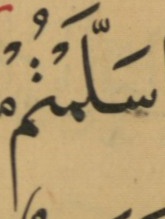 سَلَّمْتُمْ